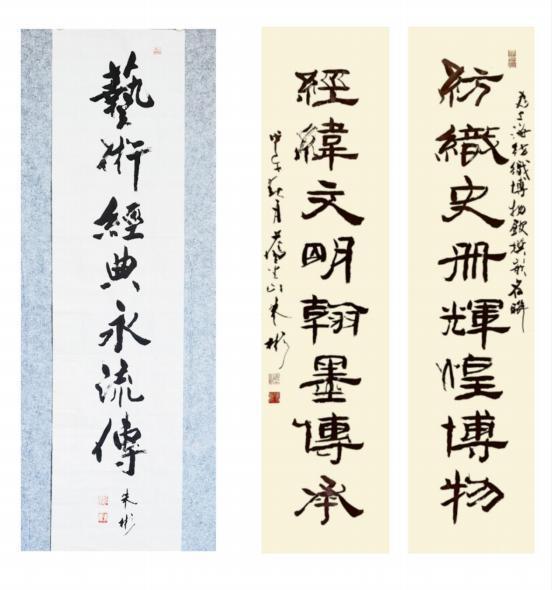 藝術經典永流傳
朱彬
為上海紡織博物館撰
紡織史冊輝煌博物
經緯文明翰墨傳承
甲午秋月 朱彬